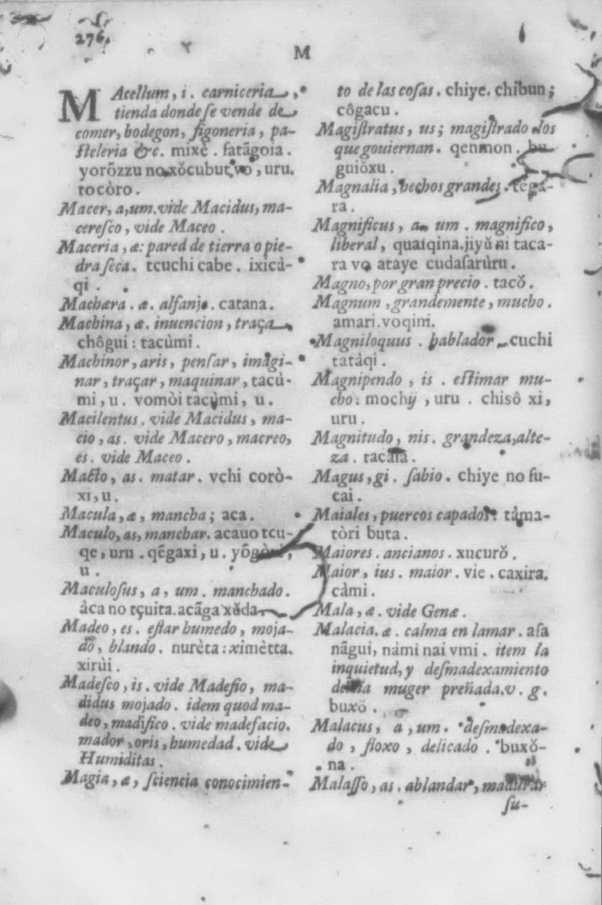 276.
M
MAcellum, i. carniceria,
tienda donde ſe vende de
comer, bodegon, figoneria, pa-
ſteleria &c. mixe. ſatãgoia.
yorŏzzu no xŏcubut vo, uru.
tocòro.
Macer, a, um. vide Macidus, ma-
cereſco, vide Maceo.
Maceria, æ: pared de tierra o pie-
dra ſeca. tcuchi cabe. ixicà-
qi.
Machæra. æ. alfanje. catana.
Machina, æ. inuencion, traça
chôgui: tacùmi.
Machinor, aris, penſar, imagi-
nar, traçar, maquinar, tacù-
mi, u. vomòi tacùmi, u.
Macilentus. vide Macidus, ma-
cio, as. vide Macero, macreo,
es. vide Maceo.
Macto, as. matar. vchi corò-
xi, u.
Macula, æ, mancha; aca.
Maculo, as, manchar. acauo tcu-
qe, uru. qẽgaxi, u. yõgòxi,
u.
Maculoſus, a, um. manchado.
àca no tçuita. acãga xŏda
Madeo, es. eſtar humedo, moja-
do, blando. nurèta: ximètta.
xirùi.
Madeſco, is. vide Madefio, ma-
didus mojado. idem quod ma-
deo, madifico. vide madefacio.
mador, oris, humedad. vide
Humiditas.
Magia, æ, ſciencia conocimien-
to de las coſas. chiye. chibun;
côgacu.
Magiſtratus, us; magiſtrado los
que gouiernan. qenmon. bu
guiòxu.
Magnalia, hechos grandes. tegà-
ra.
Magnificus, a um. magnifico,
liberal, quaiqina. jiyŭ ni taca-
ra vo ataye cudaſarùru.
Magno, por gran precio. tacŏ.
Magnum, grandemente, mucho.
amari. voqini.
Magniloquus. hablador cuchi
tatàqi.
Magnipendo, is. eſtimar mu-
cho: mochij, uru. chisô xi,
uru.
Magnitudo, nis. grandeza, alte-
za. tacaſa.
Magus, gi. ſabio. chiye no fu-
cai.
Maiales, puercos capados: tàma-
tòri buta.
Maiores. ancianos. xucurŏ.
Maior, ius. maior. vie. caxira.
càmi.
Mala, æ. vide Genæ.
Malacia. æ. calma en la mar. aſa
nãgui, nàmi nai vmi. item la
inquietud, y deſmadexamiento
de la muger preñada. v. g.
buxŏ.
Malacus, a, um. deſmadexa-
do, floxo, delicado. buxŏ-
na.
Malaſſo, as. ablandar, madurar
ſu-